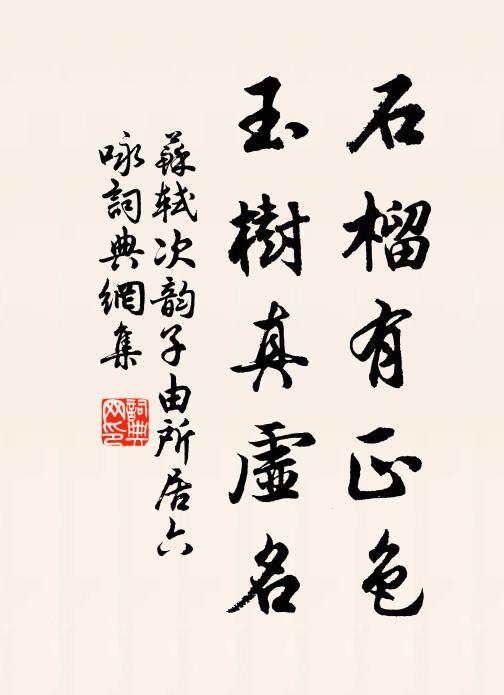 石榴有正色
玉樹真虛名
蘇軾次韵子由所居六
咏詞典網集
詞典
网印